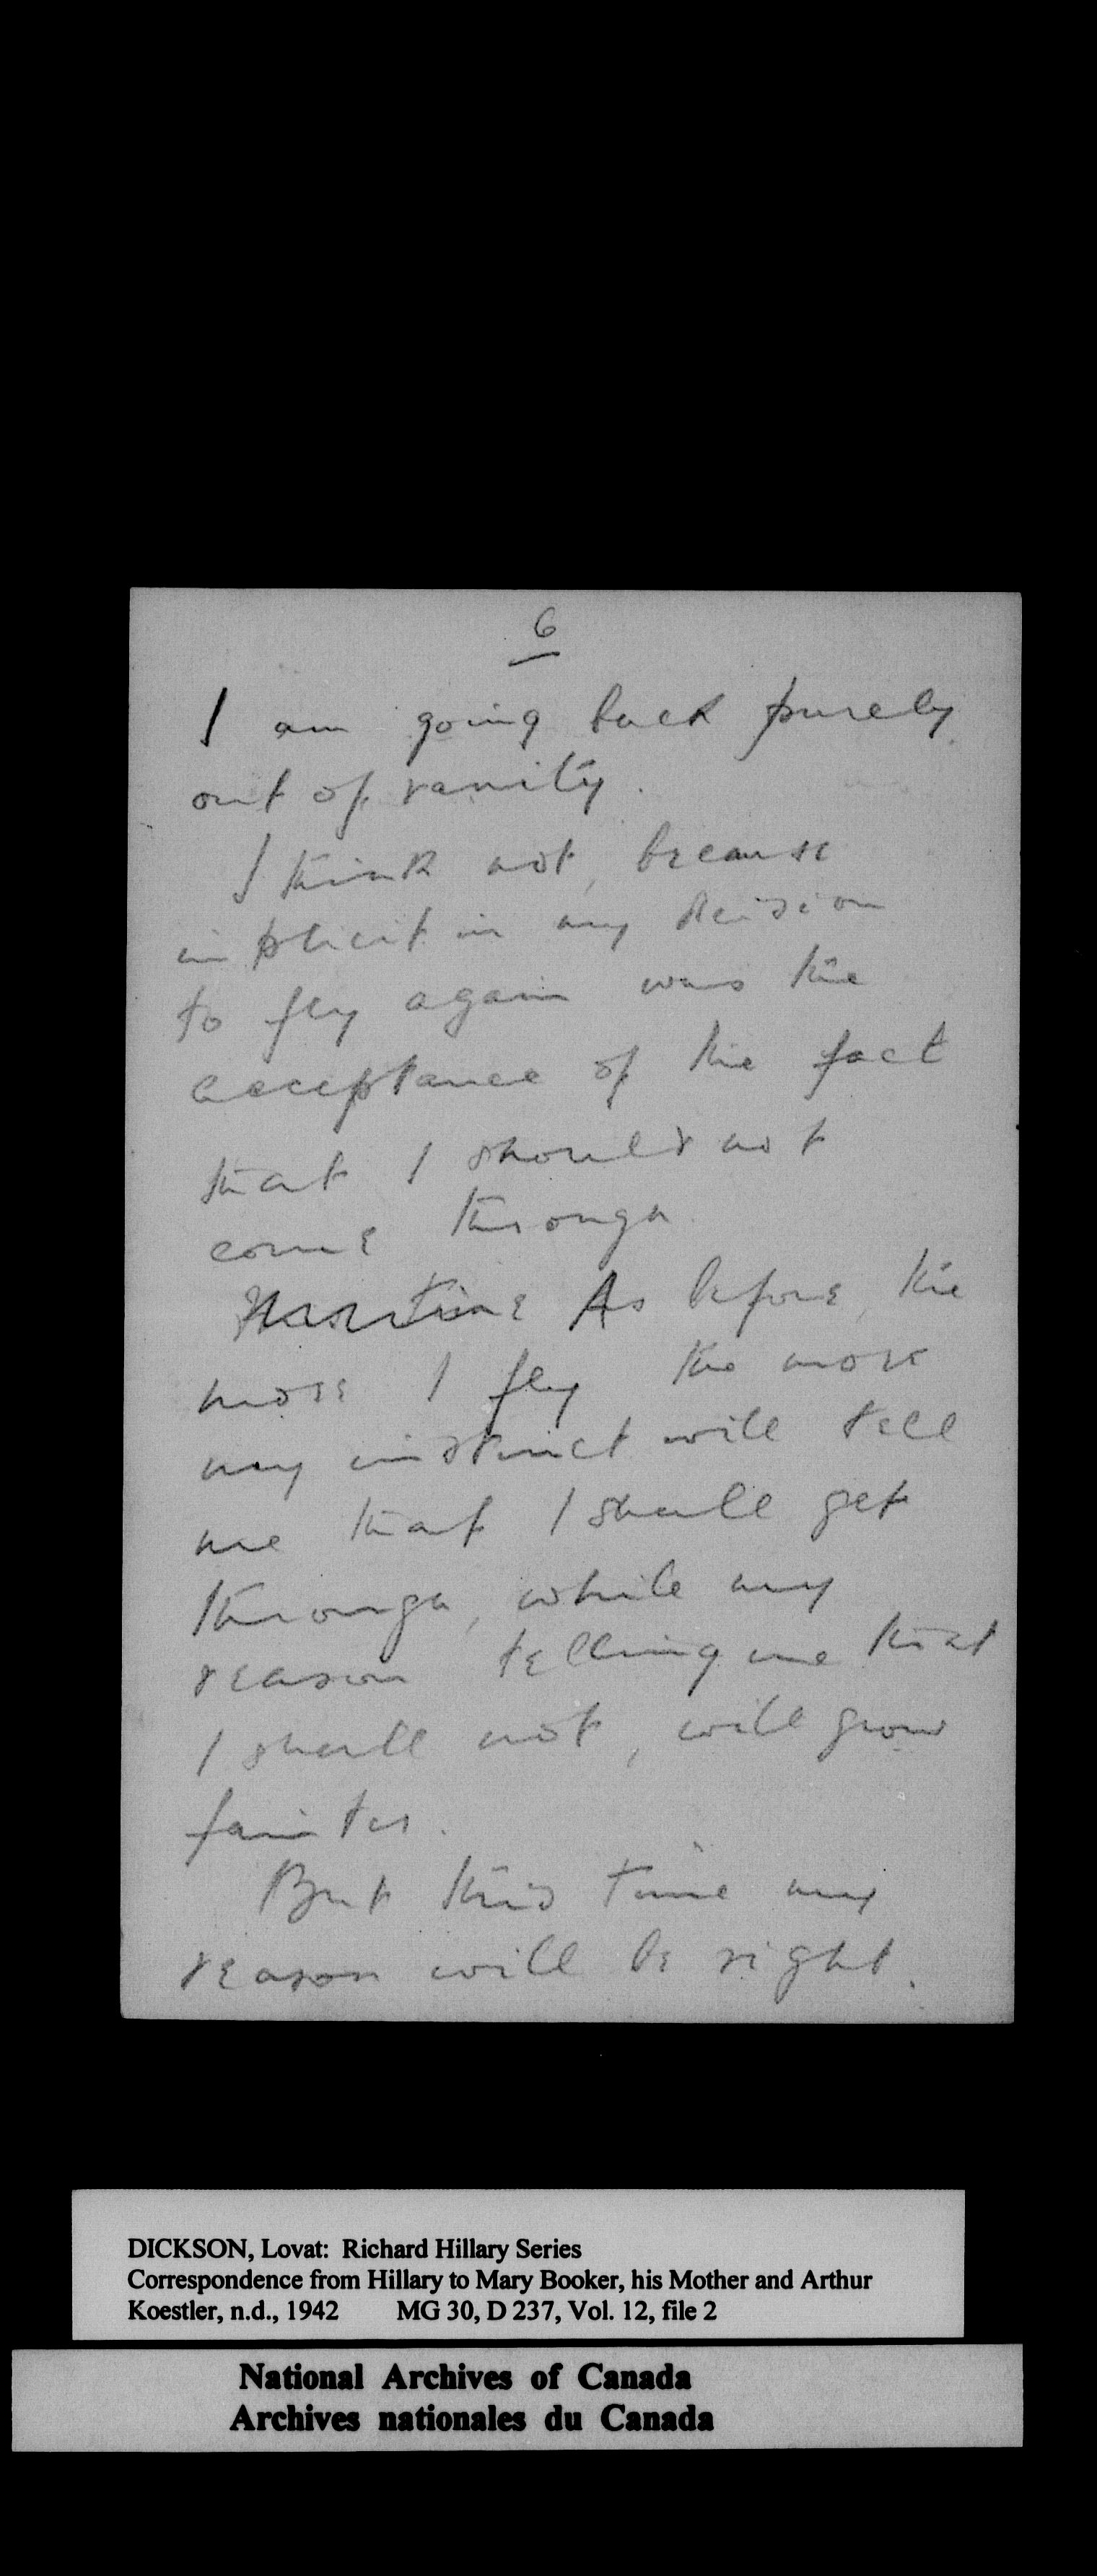 6
I am going back purely
out of vanity.
I think not, because
implicit in my decision
to fly again was the
acceptance of the fact
that I should not
come through
As before, the
more I fly the more
my instinct will tell
me that I shall get
through, while my
reason telling me that
I shall not, will grow
fainter.
But this time my
reason will be right.
DICKSON, Lovat: Richard Hillary Series
Correspondence from Hillary to Mary Booker, his Mother and Arthur
Koestler, n.d., 1942 MG 30, D 237, Vol. 12, file 2
National Archives of Canada
Archives nationales du Canada